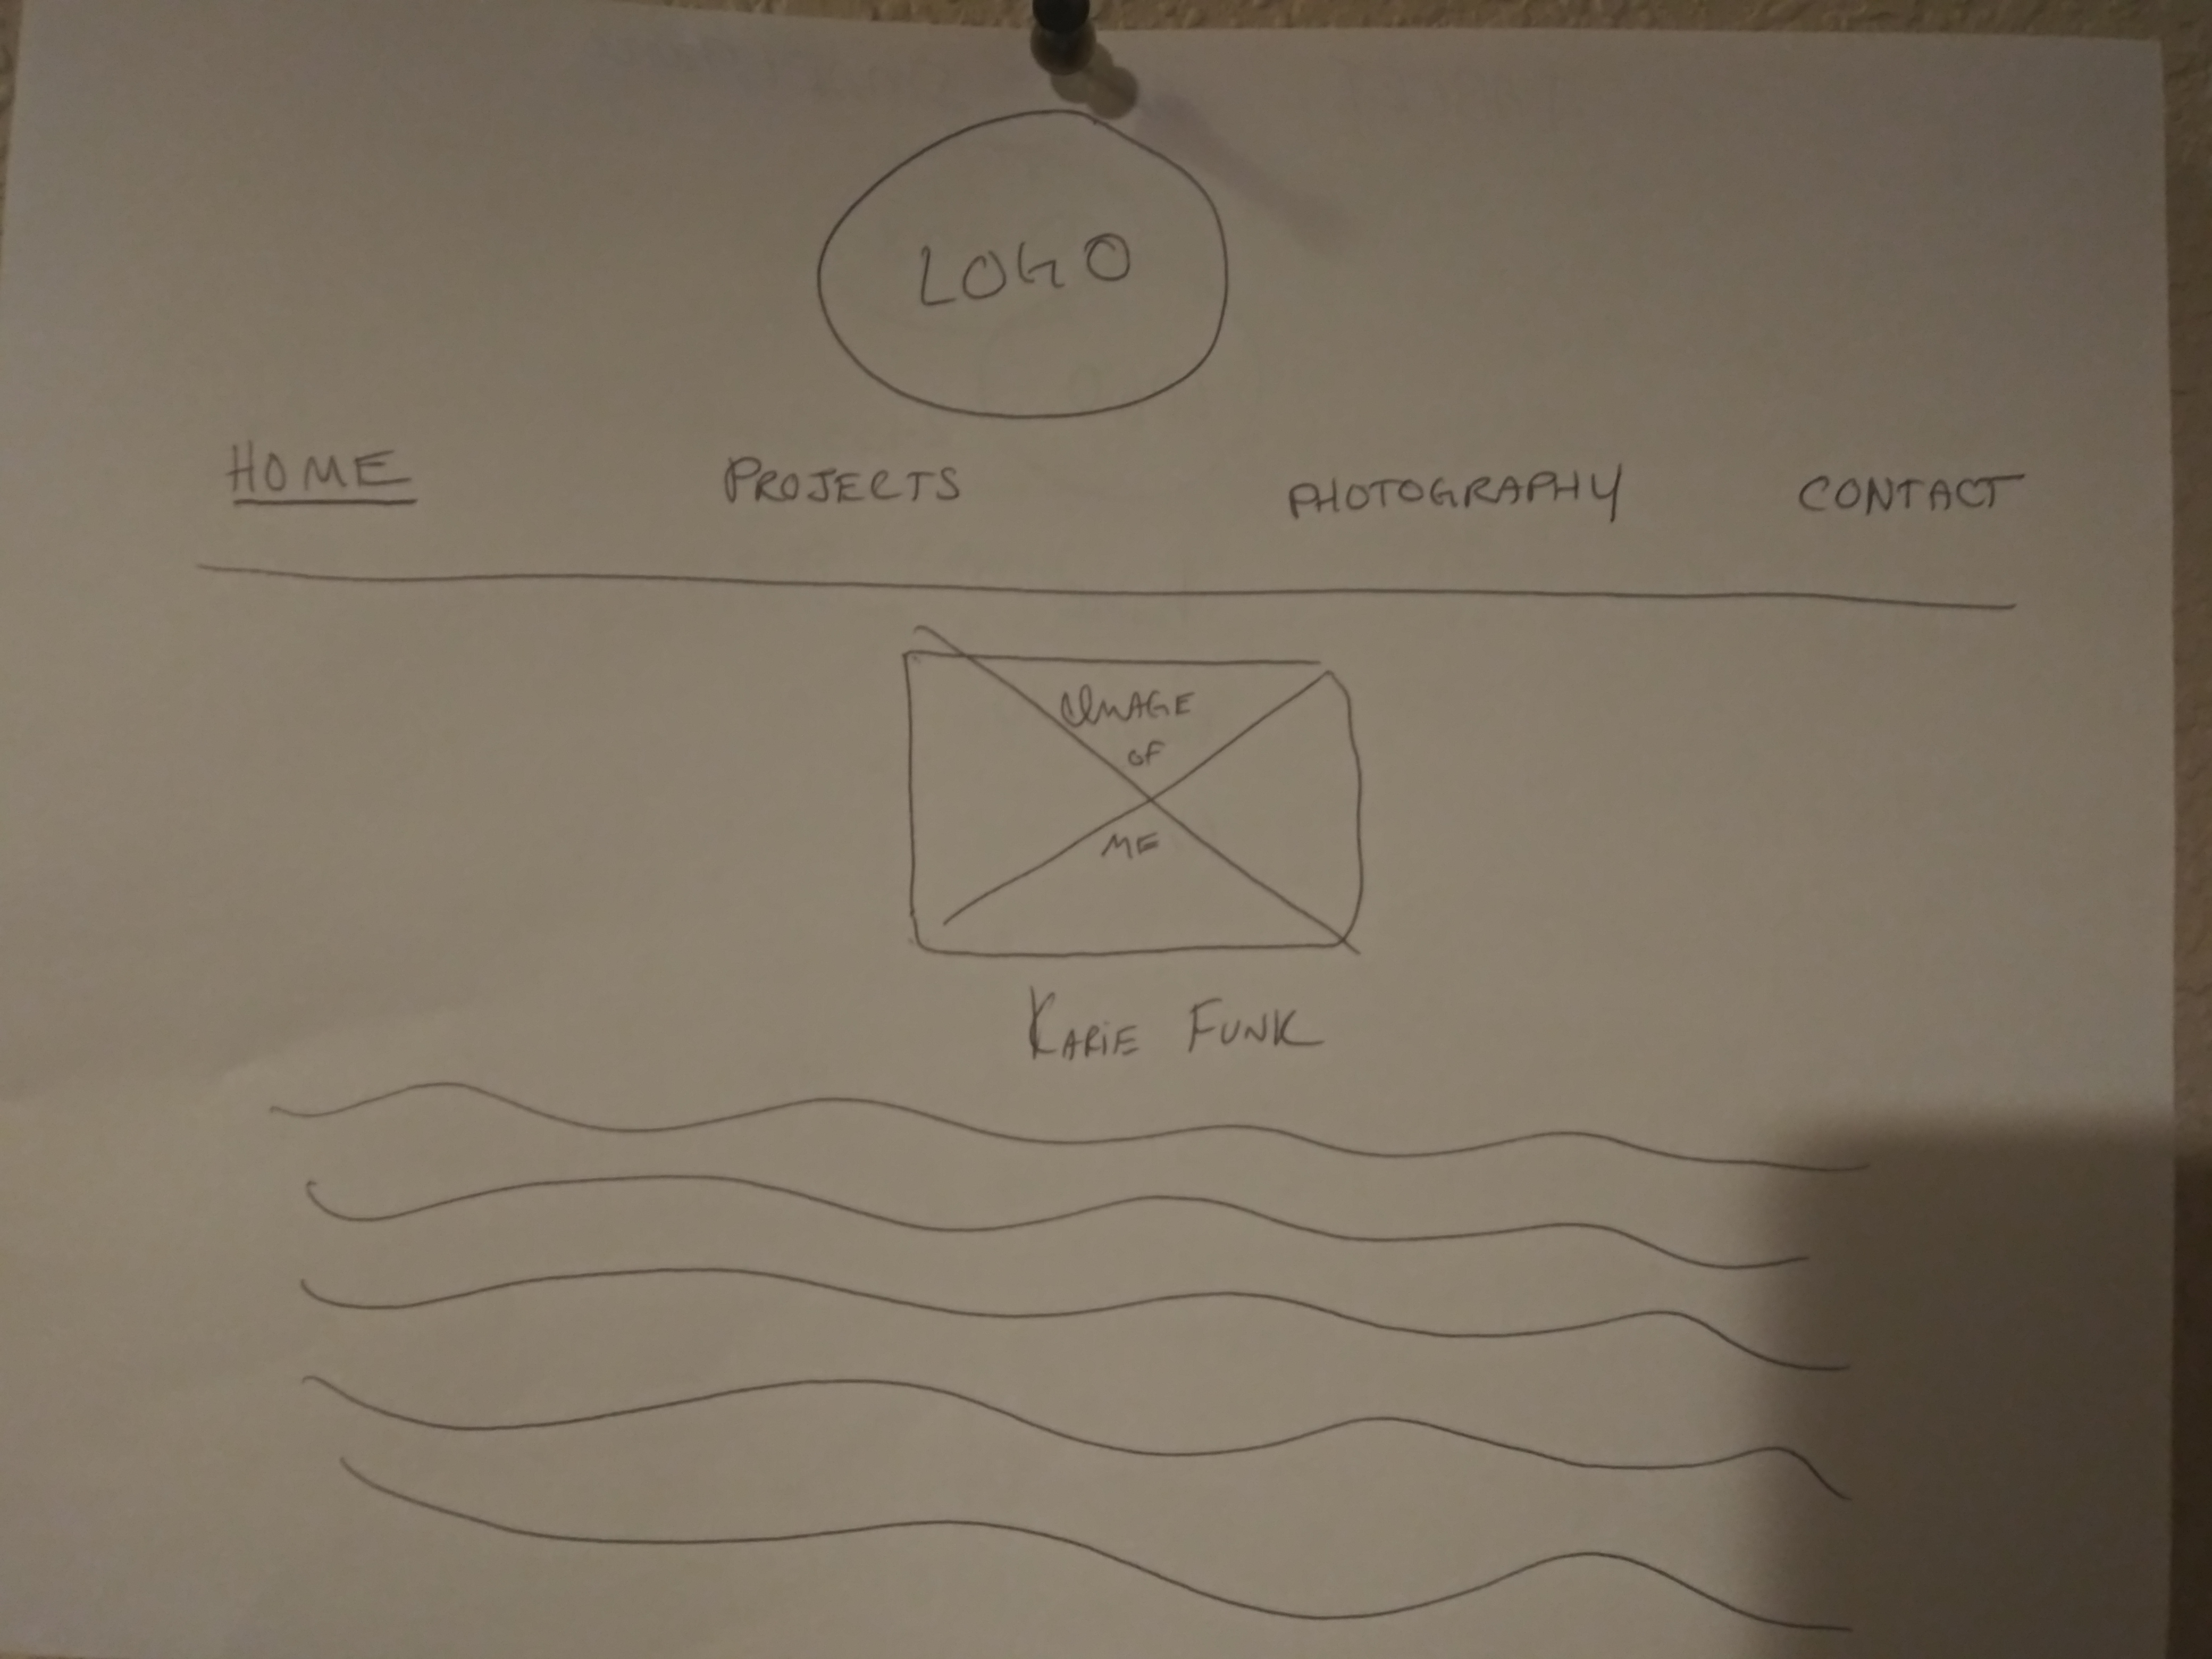 LOGO
HOME PROJECTS PHOTOGRAPHY CONTACT
IMAGE
OF
ME
KARIE FUNK